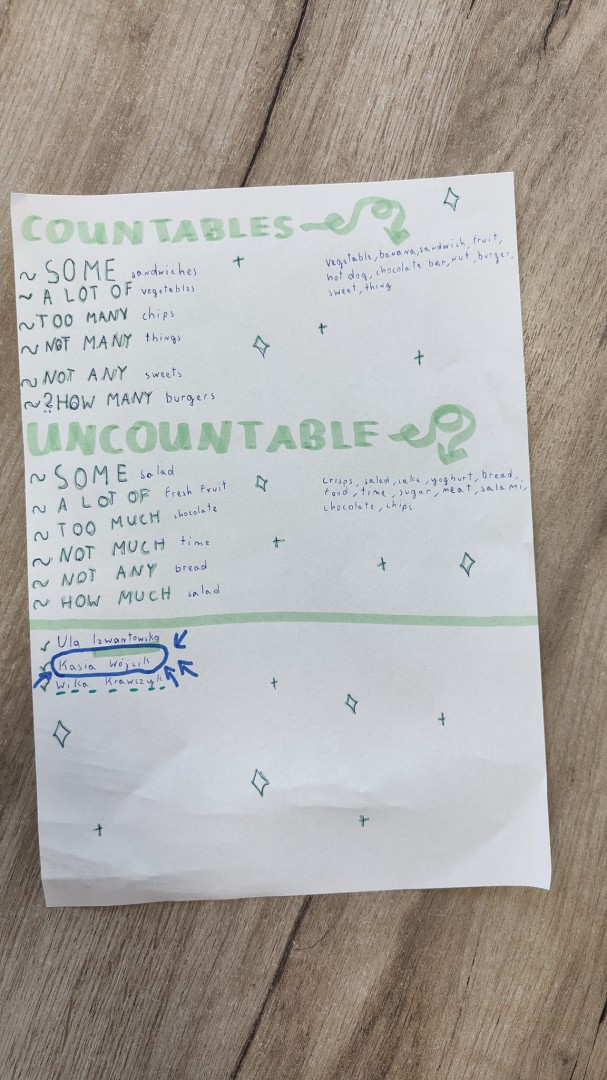 COUNTABLES
~ SOME sandwiches
~ A LOT OF vegetables
~ TOO MANY chips
~ NOT MANY things
~ NOT ANY sweets
~ ? HOW MANY burgers
vegetable, banana, sandwich, fruit,
hot dog, chocolate bar, nut, burger,
sweet, thing
UNCOUNTABLE
~ SOME salad
~ A LOT OF fresh fruit
~ TOO MUCH chocolate
~ NOT MUCH time
~ NOT ANY bread
~ HOW MUCH salad
crisps, salad, cake, yoghurt, bread,
food, time, sugar, meat, salami,
chocolate, chips
Ula Izwantowska
Kasia Wójcik
Wika Krawczyk